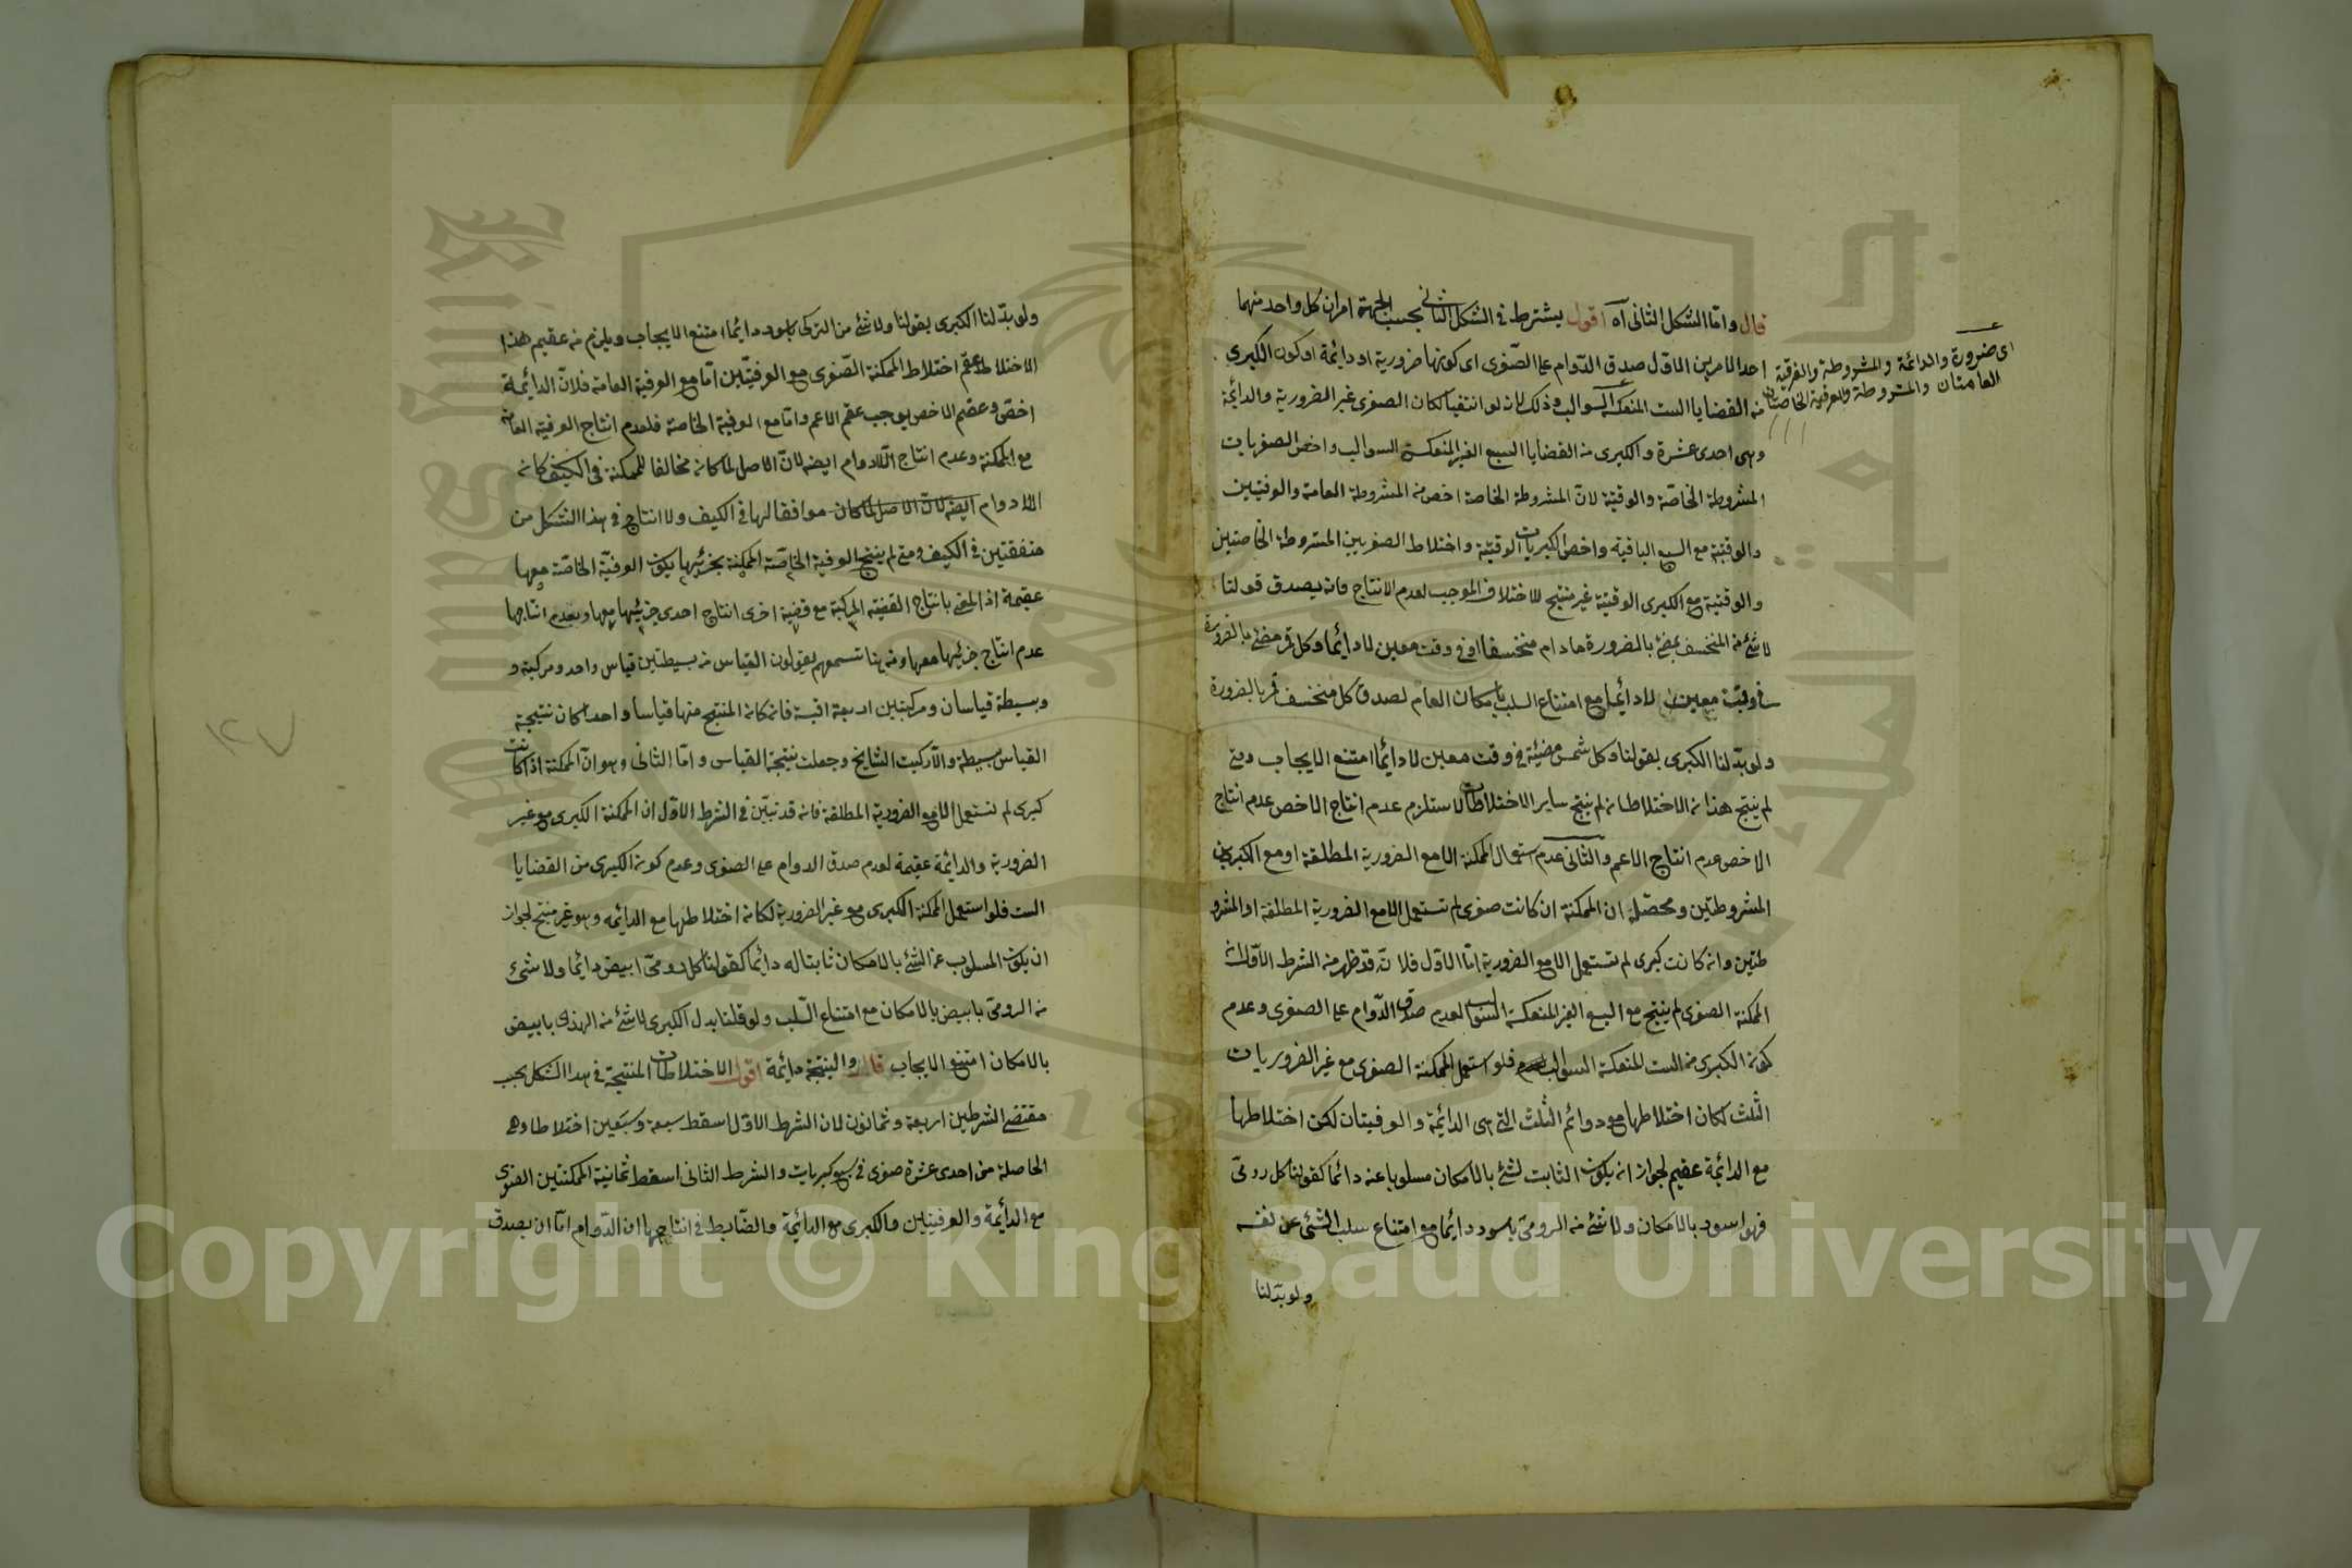 قال واما الشكل الثانى آه اقول يشترط فى الشكل الثانى بحسب الجهة امران كل واحد منهما
احد الامرين الاول صدق الدوام على الصغرى اى كونها ضرورية او دائمة او كون الكبرى
من القضايا الست المنعكسة السوالب وذلك لانه لو انتفيا لكان الصغرى غير الضرورية والدائمة
وهى احدى عشرة والكبرى من القضايا السبع الغير المنعكسة السوالب واخص الصغريات
المشروطة الخاصة والوقتية لان المشروطة الخاصة اخص من المشروطة العامة والعرفيتين
والوقتية مع السبع الباقية واخص الكبريات الوقتية واختلاط الصغريين المشروطة الخاصتين
والوقتية مع الكبرى الوقتية غير منتج للاختلاف الموجب لعدم الانتاج فانه يصدق قولنا
لا شئ من المنخسف بمضئ بالضرورة مادام منخسفا او فى وقت معين لا دائما وكل قمر مضئ بالضرورة
فى وقت معين لا دائما مع امتناع السلب بامكان العام لصدق كل منخسف قمر بالضرورة
ولو بدلنا الكبرى بقولنا وكل شمس مضيئة فى وقت معين لا دائما امتنع الايجاب ومتى
لم ينتج هذا الاختلاطان لم ينتج ساير الاختلاطات لاستلزم عدم انتاج الاخص عدم انتاج
الاخص عدم انتاج الاعم والثانى عدم استعمال الممكنة الا مع الضرورية المطلقة او مع الكبريين
المشروطتين ومحصله ان الممكنة ان كانت صغرى لم تستعمل الا مع الضرورية المطلقة او المشرو
طتين وان كانت كبرى لم تستعمل الا مع الضرورية اما الاول فلانه قد ظهر من الشرط الاول ان
الممكنة الصغرى لم ينتج مع السبع الغير المنعكسة السوالب لعدم صدق الدوام على الصغرى وعدم
كون الكبرى من الست المنعكسة السوالب فلو استعمل الممكنة الصغرى مع غير الضروريات
الثلث لكان اختلاطها مع دوائم الثلث التى هى الدائمة والعرفيتان لكن اختلاطها
مع الدائمة عقيم لجواز ان يكون الثابت لشئ بالامكان مسلوبا عنه دائما كقولنا كل رومى
فهو اسود بالامكان ولا شئ من الرومى باسود دائما مع امتناع سلب الشئ عن نفسه
ولو بدلنا
اى ضرورة والدائمة والمشروطة والعرفية
العامتان والمشروطة والعرفية الخاصتان
ولو بدلنا الكبرى بقولنا ولا شئ من التركى باسود دائما امتنع الايجاب ويلزم من عقيم هذا
الاختلاط عقم اختلاط الممكنة الصغرى مع العرفيتين اما مع العرفية العامة فلان الدائمة
اخص وعقم الاخص يوجب عقم الاعم واما مع العرفية الخاصة فلعدم انتاج العرفية العامة
مع الممكنة وعدم انتاج اللادوام ايضه لان الاصل لما كان مخالفا للممكنة فى الكيف كانه
اللادوام ايضه لان الاصل لما كان موافقا لها فى الكيف ولا انتاج فى هذا الشكل من
متفقتين فى الكيف ومتى لم ينتج العرفية الخاصة الممكنة بجزئيها يكون العرفية الخاصة معها
عقيمة اذ المعنى بانتاج القضية المركبة مع قضية اخرى انتاج احدى جزئيها معها وبعدم انتاجها
عدم انتاج جزئيها معها ومن هنا تسمعهم يقولون القياس من بسيطتين قياس واحد ومركبة و
وبسيطة قياسان ومركبتين اربعة اقيسة فان كان المنتج منها قياسا واحدا كان نتيجة
القياس بسيطة والا ركبت النتايج وجعلت نتيجة القياس واما الثانى وهو ان الممكنة اذا كانت
كبرى لم تستعمل الا مع الضرورية المطلقة فانه قد تبين فى الشرط الاول ان الممكنة الكبرى مع غير
الضرورية والدائمة عقيمة لعدم صدق الدوام على الصغرى وعدم كون الكبرى من القضايا
الست فلو استعمل الممكنة الكبرى مع غير الضرورية لكانه اختلاطها مع الدائمه وهو غير منتج لجواز
ان يكون المسلوب عن الشئ بالامكان ثابتا له دائما كقولنا كل رومى ابيض دائما ولا شئ
من الرومى بابيض بالامكان مع امتناع السلب ولو قلنا بدل الكبرى لا شئ من الهندى بابيض
بالامكان امتنع الايجاب قال والنتيجة دائمة اقول الاختلاطات المنتجة فى هذا الشكل بحسب
مقتضى الشرطين اربعة وثمانون لان الشرط الاول اسقط سبعة وسبعين اختلاطا وهى
الحاصلة من احدى عشرة صغرى فى سبع كبريات والشرط الثانى اسقط ثمانية الممكنتين الصغرى
مع الدائمة والعرفيتين والكبرى مع الدائمة والضابط فى انتاجها ان الدوام اما ان يصدق
١٢٧
Copyright © King Saud University